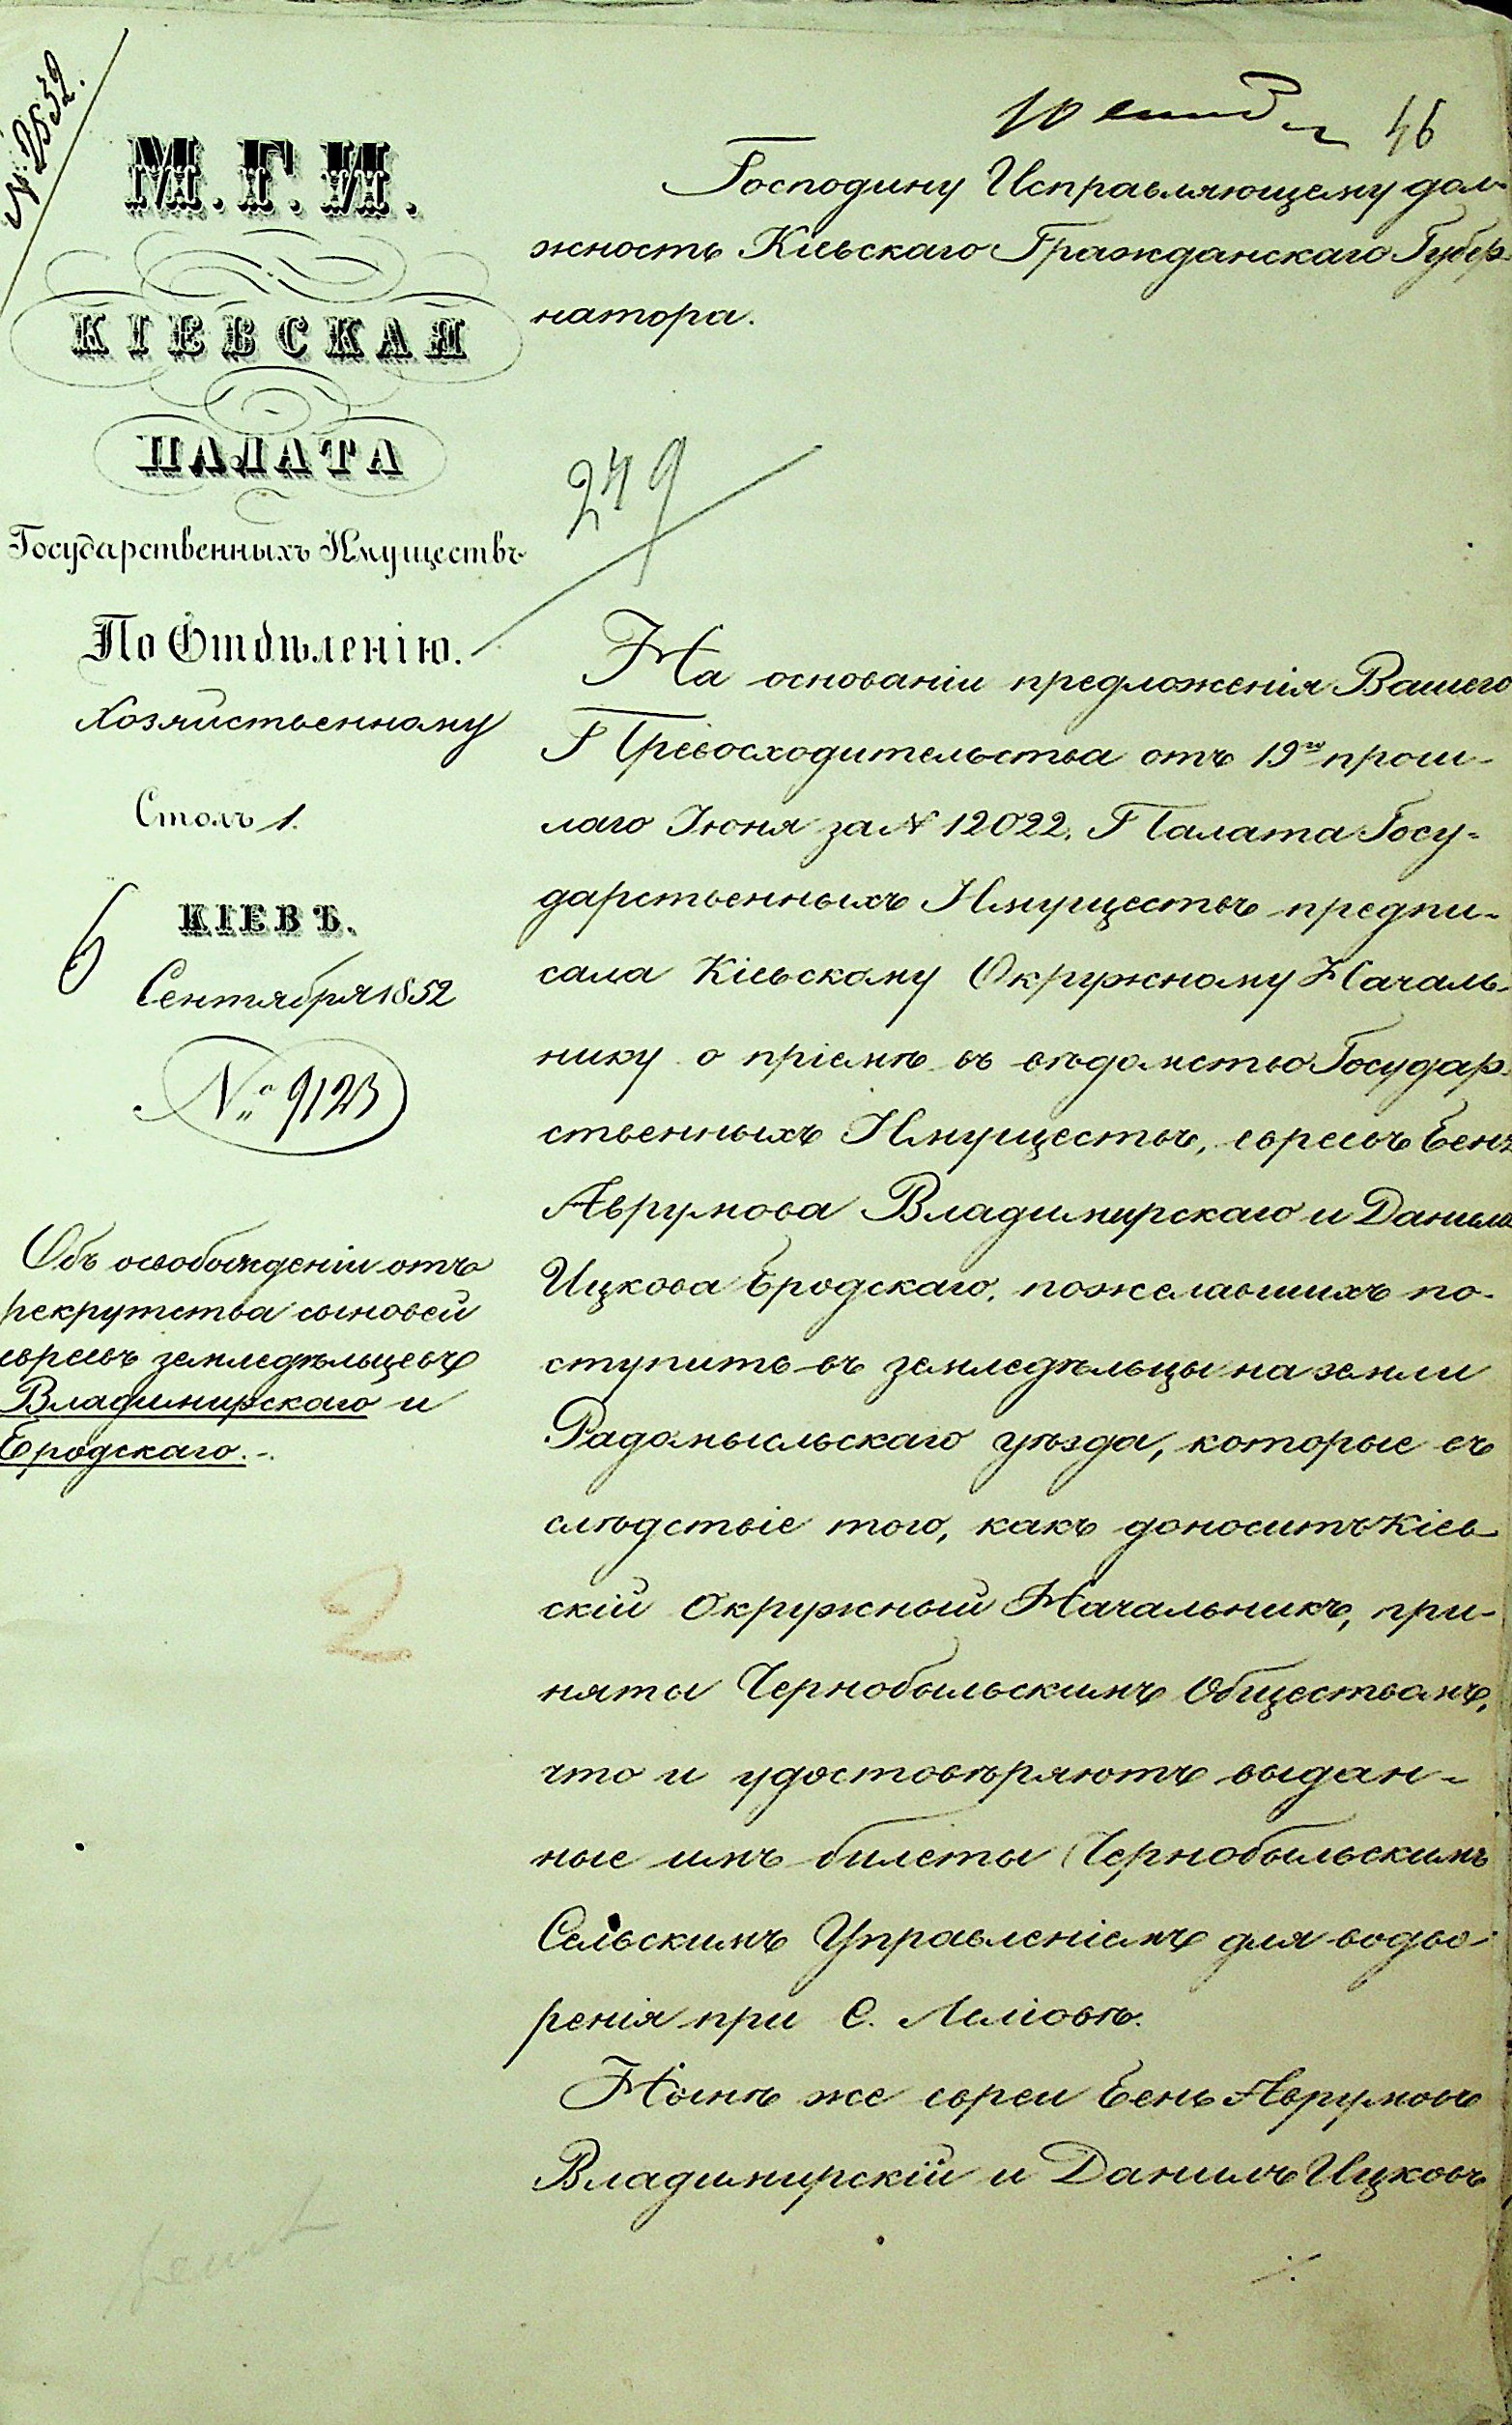 № 2532.
М. Г. И.
КІЕВСКАЯ
ПАЛАТА
Государственныхъ Имуществъ
По Отдѣленію.
Хозяйственному
Столъ 1.
КІЕВЪ.
6 Сентября 1852
№ 9123
Объ освобожденіи отъ
рекрутства сыновей
евреевъ земледѣльцевъ
Владимирскаго и
Бродскаго.-.
2
10 сент 46
Господину Исправляющему дол-
жность Кіевскаго Гражданскаго Губер-
натора.
249
На основаніи предложенія Вашего
Превосходительства отъ 19го прош-
лаго Іюня за № 12022, Палата Госу-
дарственныхъ Имуществъ предпи-
сала Кіевскому Окружному Началь-
нику о пріемѣ въ вѣдомство Государ-
ственныхъ Имуществъ, евреевъ Беня
Аврумова Владимирскаго и Данила
Ицкова Бродскаго, пожелавшихъ по-
ступить въ земледѣльцы на земли
Радомысльскаго уѣзда, которые въ
слѣдствіе того, какъ доноситъ Кіев-
скій Окружный Начальникъ, при-
няты Чернобыльскимъ Обществомъ,
что и удостовѣряютъ выдан-
ные имъ билеты Чернобыльскимъ
Сельскимъ Управленіемъ для водво-
ренія при С.
Нынѣ же евреи Бень Аврумовъ
Владимирскій и Данилъ Ицковъ